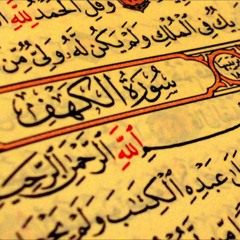 وَقُلِ الْحَمْدُ لِلَّهِ
يكٌ فِي الْمُلْكِ وَلَمْ يَكُن لَّهُ وَلِيٌّ مِّنَ
سُورَةُ الْكَهْفِ
اللَّهِ الرَّحْمَٰنِ الرَّحِيمِ
عَبْدِهِ الْكِتَابَ وَلَمْ يَجْعَل